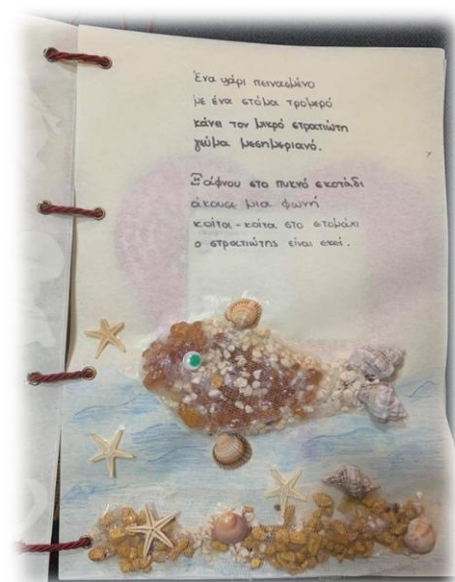 Ένα ψάρι πεινασμένο
με ένα στόμα τρομερό
κάνει τον μικρό στρατιώτη
γεύμα μεσημεριανό.
Ξάφνου στο πυκνό σκοτάδι
άκουσε μια φωνή
κοίτα-κοίτα στο στομάχι
ο στρατιώτης είναι εκεί.